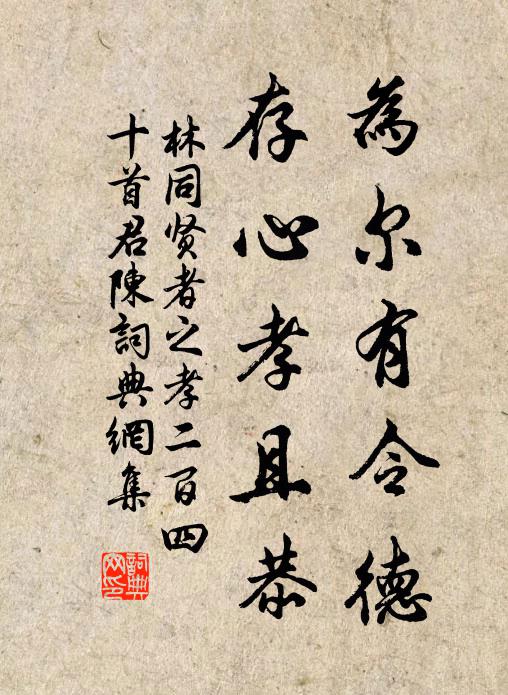 為尔有令德
存心孝且恭
林同贤者之孝二百四
十首君陳詞典網集
詞典网印